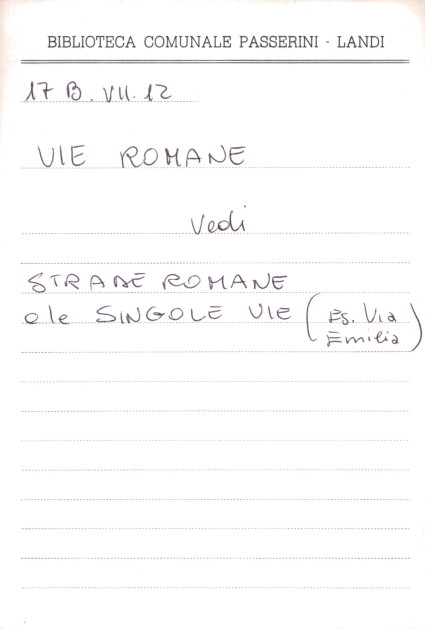 BIBLIOTECA COMUNALE PASSERINI - LANDI
17 B. VII. 12
VIE ROMANE
Vedi
STRADE ROMANE
o le SINGOLE VIE (Es. Via
Emilia)